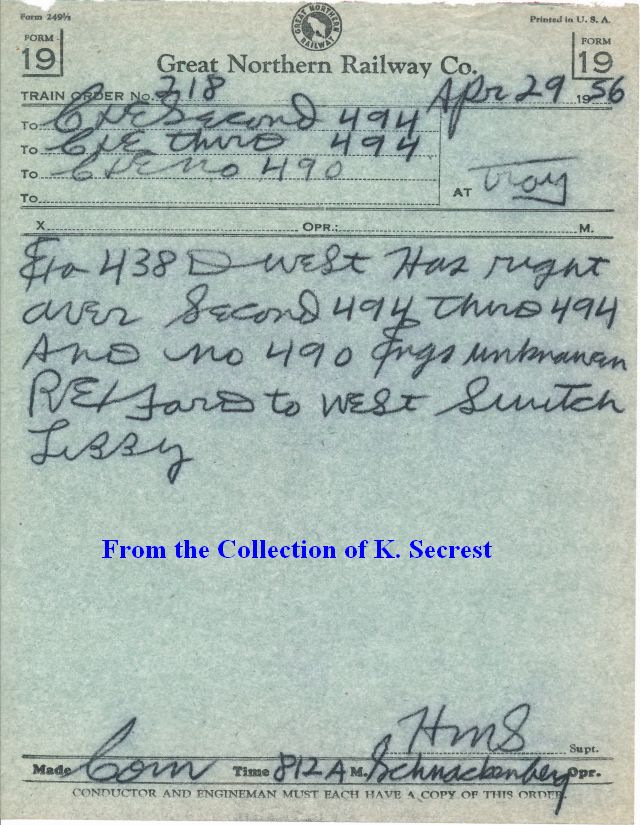 Form 249½
Printed in U. S. A.
GREAT NORTHERN RAILWAY
FORM 19
FORM 19
Great Northern Railway Co.
TRAIN ORDER No. 218 Apr 29 1956
To C&E Second 494
To C&E third 494
To C&E no 490
To
AT Troy
X OPR.: M.
438 D west Has right
over Second 494 third 494
And no 490 Engs unknown
Rexford to west Switch
Libby
From the Collection of K. Secrest
HMS Supt.
Made Com Time 812 A M. Schnackenberg Opr.
CONDUCTOR AND ENGINEMAN MUST EACH HAVE A COPY OF THIS ORDER.